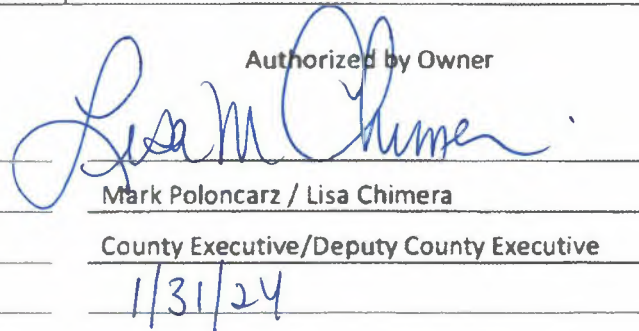 Authorized by Owner
Lisa M Chimera
Mark Poloncarz / Lisa Chimera
County Executive/Deputy County Executive
1/31/24